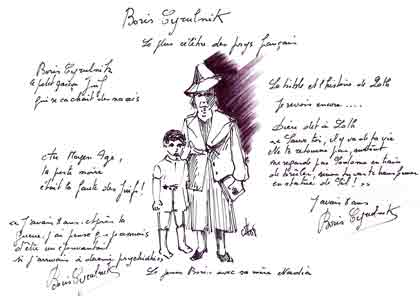 Boris Cyrulnik
Le plus célèbre des psys français
Boris Cyrulnik
le petit garçon Juif
qui se cachait des nazis
Au Moyen Age,
la peste noire
était la faute des Juifs !
« J'avais 8 ans. Après la
guerre, j'ai pensé
si j'arrivais à devenir psychiatre »
Boris Cyrulnik
La bible et l'histoire de Loth
Je revois encore ....
Dieu dit à Loth
« Sauve toi, il y va de ta vie
Ne te retourne pas, surtout
ne regarde pas Sodome en train
de brûler, sinon tu vas te transformer
en statue de Sel ! »
J'avais 8 ans
Boris Cyrulnik
Le jeune Boris avec sa mère Nadia